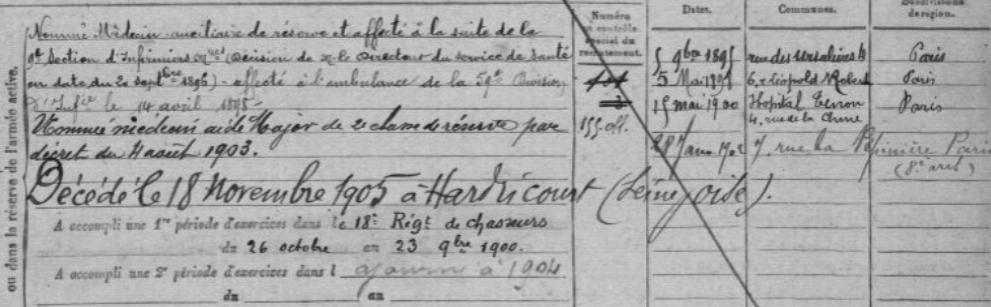 ou dans la réserve de l'armée active.
Nommé Médecin auxiliaire de réserve et affecté à la suite de la
9e Section d'Infirmiers Mres (Décision de M. le Directeur du service de Santé
en date du 20 septbre 1896) - affecté à l'ambulance de la 59e Division
d'Infie le 14 avril 1898 -
Nommé médecin aide Major de 2e classe de réserve par
décret du 4 août 1903.
Décédé le 18 Novembre 1905 à Hardricourt (Seine Oise).
A accompli une 1re période d'exercices dans le 18e Régt de chasseurs
du 26 octobre au 23 9bre 1900.
A accompli une 2e période d'exercices dans l ajourné à 1904
du au
Numéro
au contrôle
spécial du
recrutement.
155 off.
Dates. Communes. Subdivisions
de région.
5 9bre 1895 rue des Ursulines Paris
5 Mai 1898 6, r. Léopold Robert Paris
15 mai 1900 Hôpital Tenon Paris
4, rue de la Chine
28 Janv. 1902 7, rue La Pépinière Paris
(8e arrt)